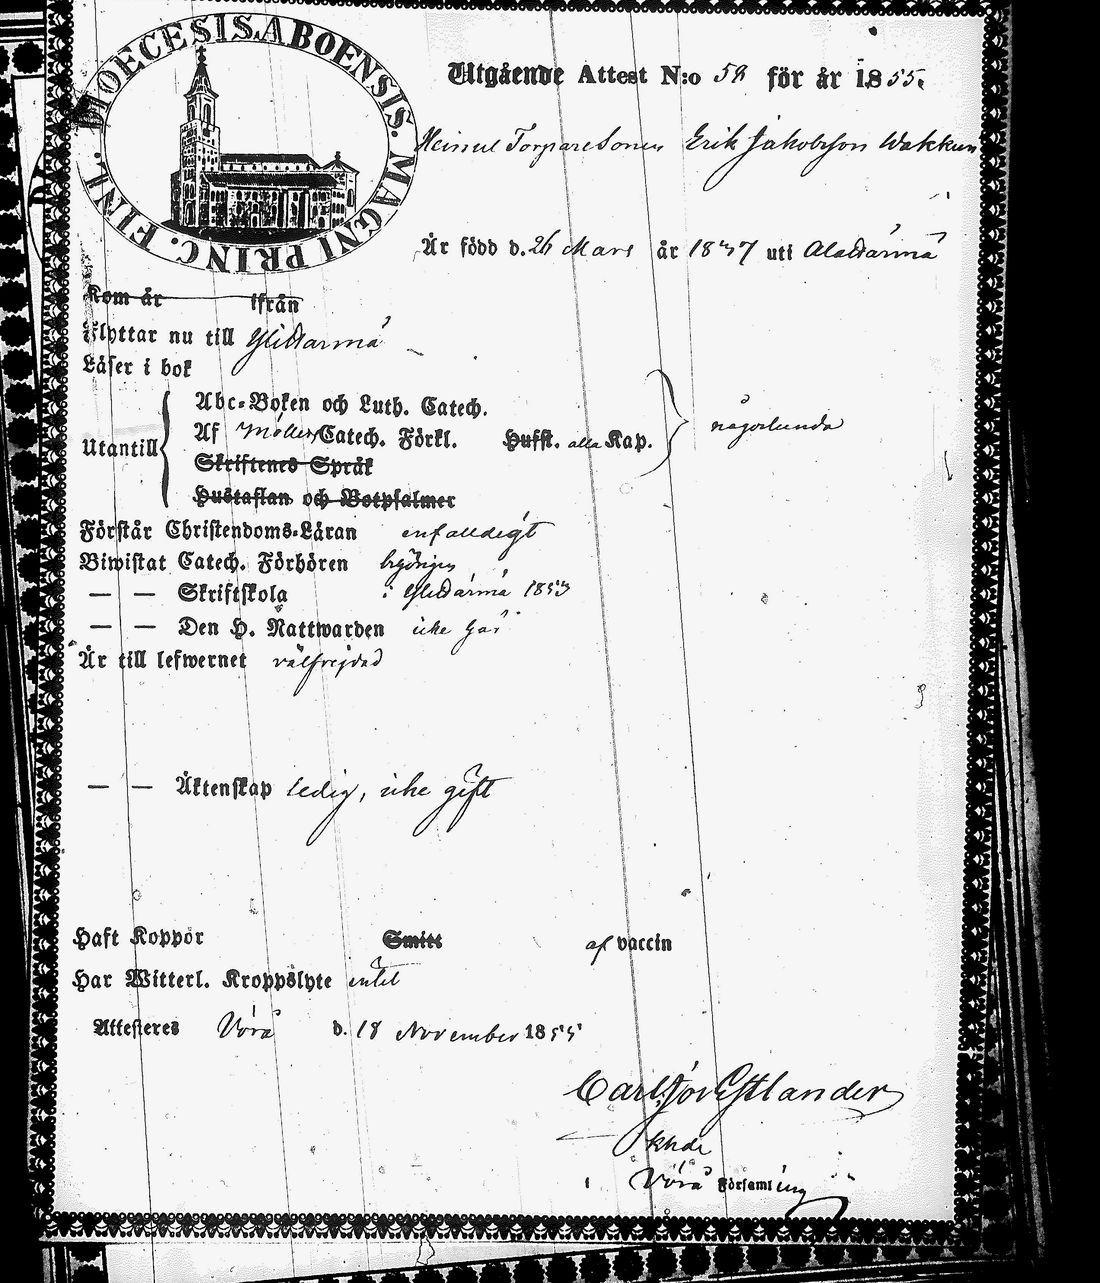 DIOECESIS ABOENSIS. MAGNI PRINC. FINL.
Utgående Attest N:o 58 för år 1855.
Torparesonen Erik Jakobsson Wakkuri
Är född d. 26 Mars år 1837 uti Alahärmä
Kom år ifrån
Flyttar nu till Ylihärmä
Läser i bok
Utantill
Abc-Boken och Luth. Catech.
Af Möllers Catech. Förkl. Hufst. alla Kap. någorlunda
Skriftenes Språk
Hustaflan och Botpsalmer
Förstår Christendoms-Läran enfaldigt
Biwistat Catech. Förhören
— — Skriftskola i Ylihärmä 1853
— — Den H. Nattwarden icke
Är till lefwernet välfrejdad
— — Äktenskap ledig, icke gift
Haft Koppor Smitt af vaccin
Har Witterl. Kroppslyte intet
Attesteres Vörå d. 18 November 1855
Carl Estlander
Khde
i Vörå Församling